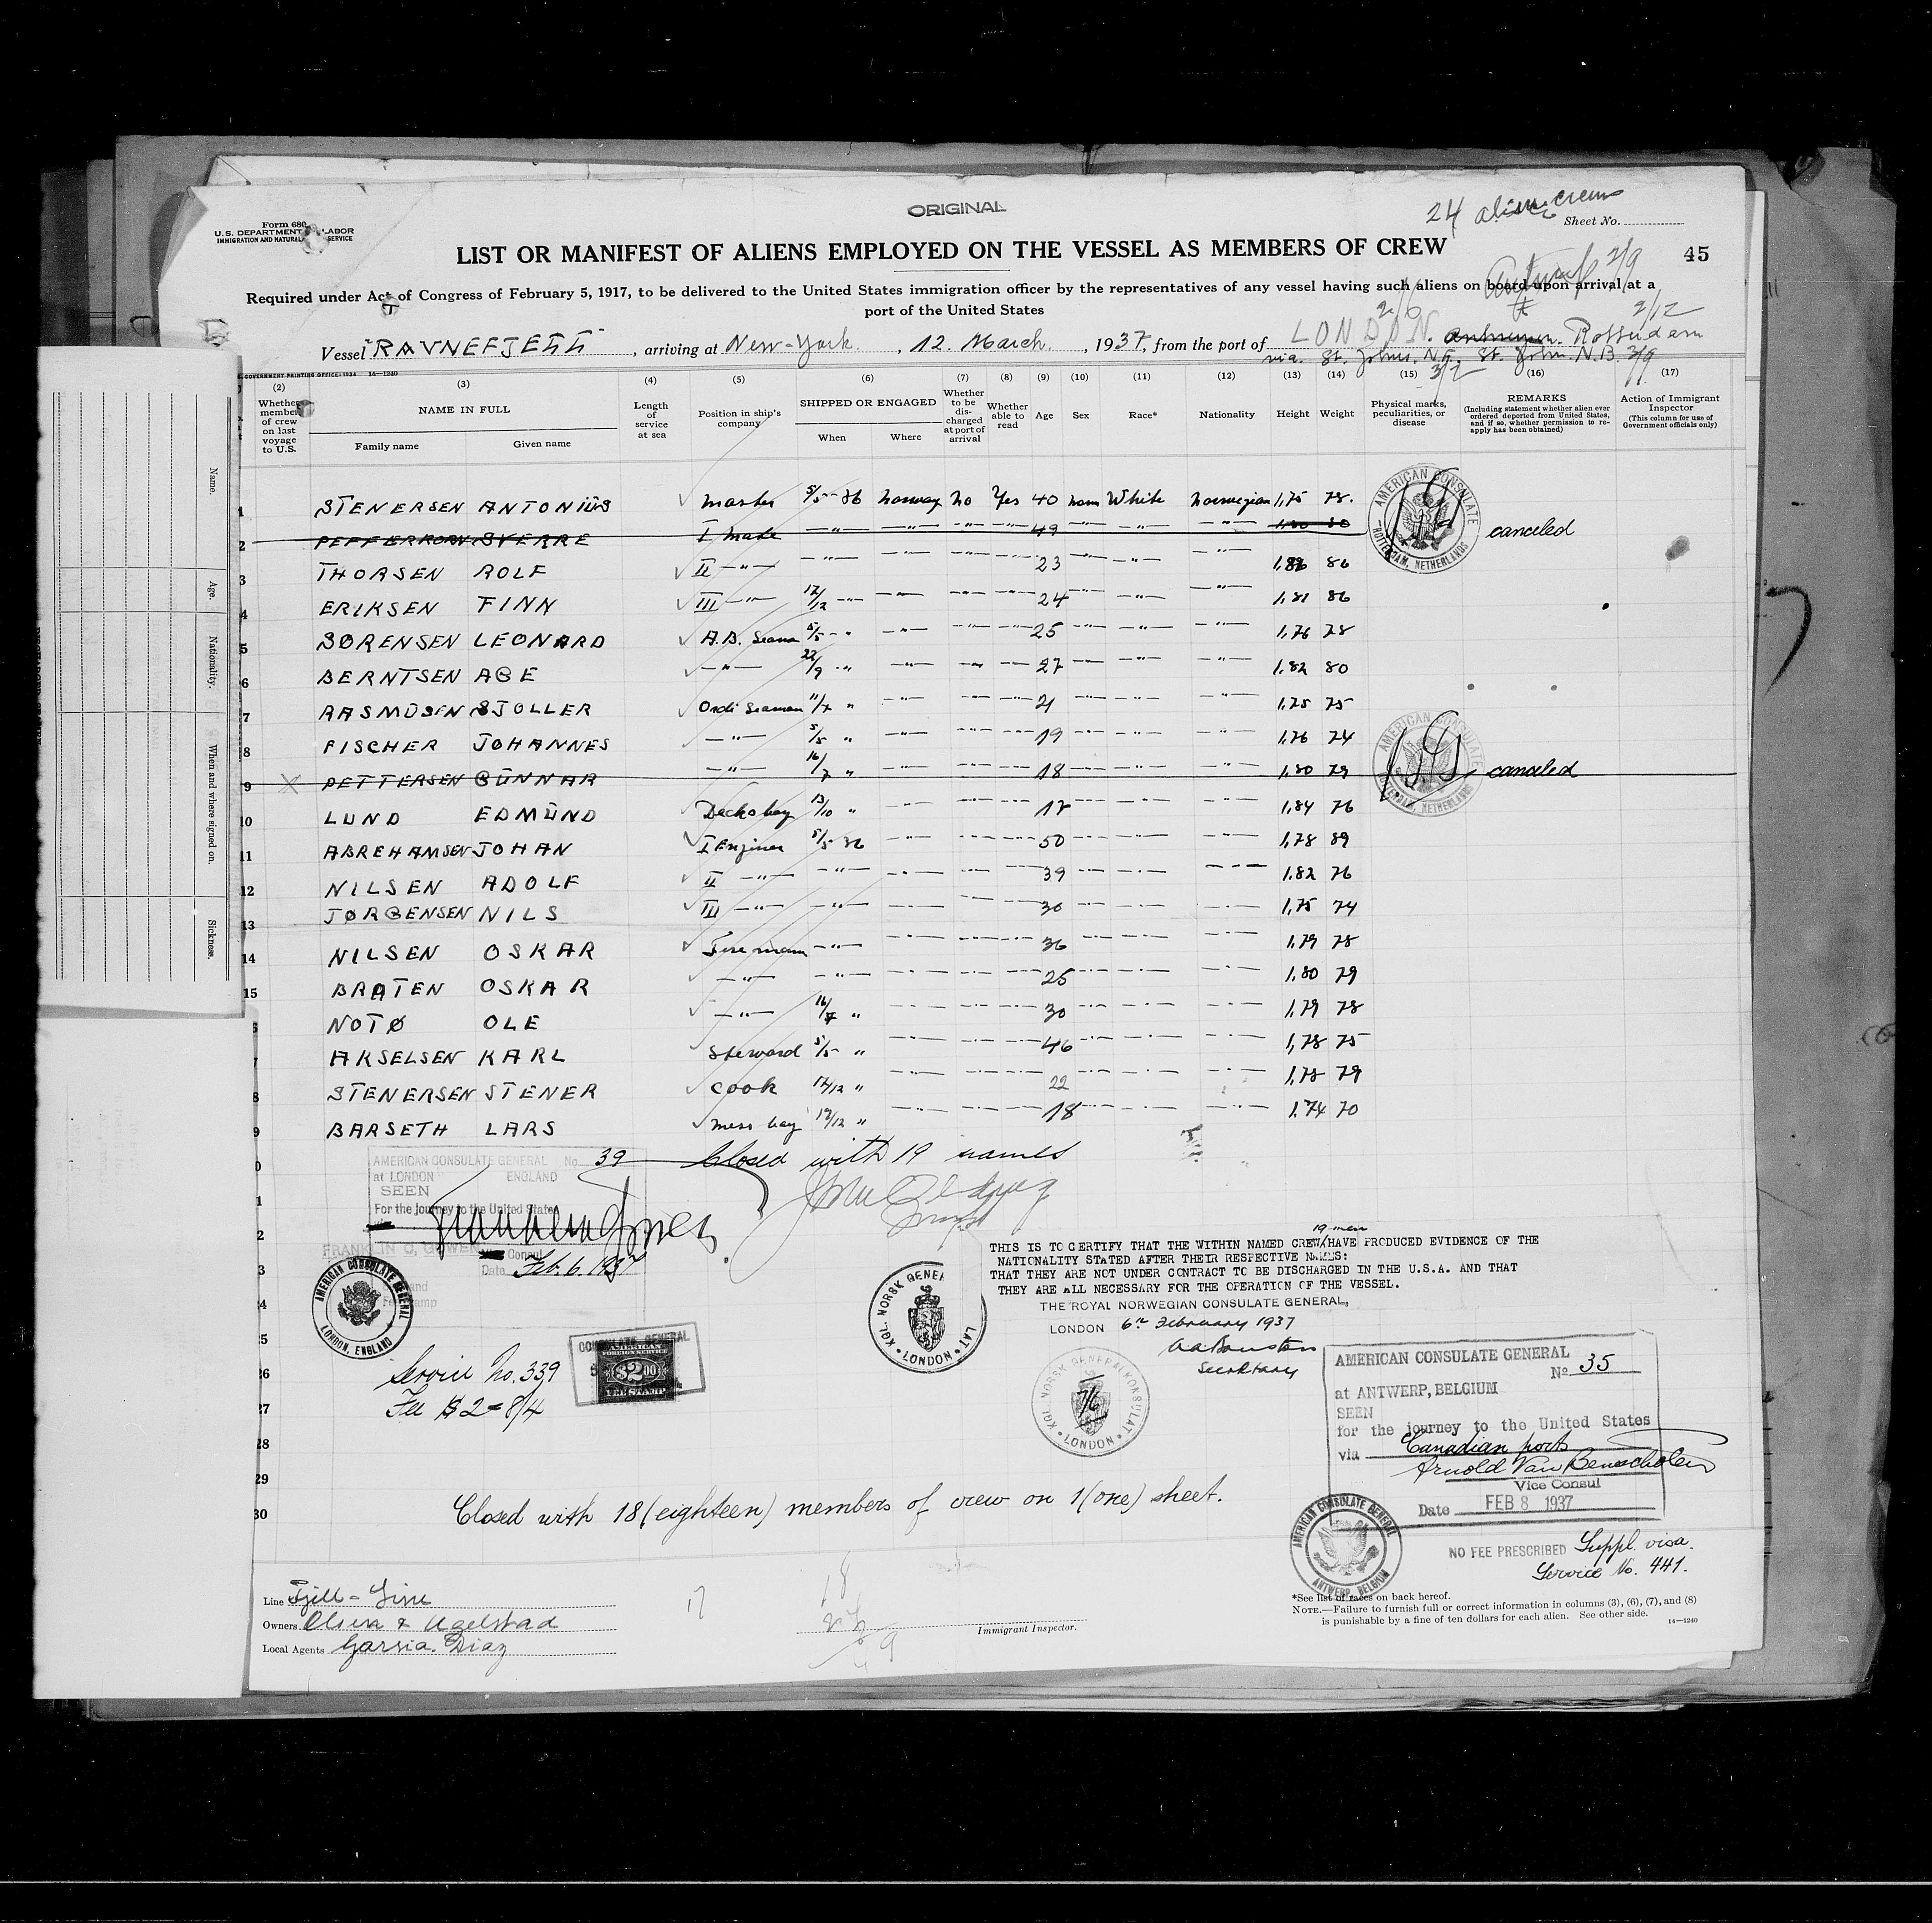 ORIGINAL
24 alien crew
Form 680
U. S. DEPARTMENT LABOR
IMMIGRATION AND NATURAL SERVICE
Sheet No.
LIST OR MANIFEST OF ALIENS EMPLOYED ON THE VESSEL AS MEMBERS OF CREW
45
Required under Act of Congress of February 5, 1917, to be delivered to the United States immigration officer by the representatives of any vessel having such aliens on board upon arrival at a
port of the United States
Antwerp 2/9
2/6 2/12
Vessel RAVNEFJELL, arriving at New-York, 12. March, 1937, from the port of LONDON. Antwerpen. Rotterdam
via. St. Johns. N.F. St. John. N.B. 3/9
3/2
GOVERNMENT PRINTING OFFICE: 1934 14—1240
(2) (3) (4) (5) (6) (7) (8) (9) (10) (11) (12) (13) (14) (15) (16) (17)
Whether member of crew on last voyage to U.S.
NAME IN FULL
Family name Given name
Length of service at sea
Position in ship's company
SHIPPED OR ENGAGED
When Where
Whether to be discharged at port of arrival
Whether able to read
Age
Sex
Race*
Nationality
Height
Weight
Physical marks, peculiarities, or disease
REMARKS
(Including statement whether alien ever ordered deported from United States, and if so, whether permission to reapply has been obtained)
Action of Immigrant Inspector
(This column for use of Government officials only)
Name.
Age.
Nationality.
When and where signed on.
Sickness.
1 STENERSEN ANTONIUS Master 5/5-36 Norway No Yes 40 Mann White Norwegian 1,75 78.
2 PEFFERKORN SVERRE I Mate —"— —"— —"— —"— 49 —"— —"— —"— 1,80 80 canceled
3 THORSEN ROLF II —"— —"— —"— —"— —"— 23 —"— —"— —"— 1,86 86
4 ERIKSEN FINN III —"— 17/12 —"— —"— —"— —"— 24 —"— —"— —"— 1,81 86
5 SØRENSEN LEONARD A.B. Seaman 5/5 —"— —"— —"— —"— 25 —"— —"— —"— 1,76 78
6 BERNTSEN AGE —"— 22/9 " —"— —"— —"— 27 —"— —"— —"— 1,82 80
7 RASMUSEN SJOLLER Ordi Seaman 11/7 " —"— —"— —"— 21 —"— —"— —"— 1,75 75
8 FISCHER JOHANNES —"— 5/5 " —"— —"— —"— 19 —"— —"— —"— 1,76 74
9 PETTERSEN GUNNAR —"— 16/7 " —"— —"— —"— 18 —"— —"— —"— 1,80 79 canceled
10 LUND EDMUND Decksboy 13/10 " —"— —"— —"— 17 —"— —"— —"— 1,84 76
11 ABREHAMSEN JOHAN I Enginer 5/5 36 —"— —"— —"— 50 —"— —"— —"— 1,78 89
12 NILSEN ADOLF II —"— —"— —"— —"— —"— 39 —"— —"— —"— 1.82 76
13 JØRGENSEN NILS III —"— —"— —"— —"— —"— 36 —"— —"— —"— 1,75 74
14 NILSEN OSKAR Fireman —"— —"— —"— —"— 36 —"— —"— —"— 1,79 78
15 BRATEN OSKAR —"— —"— —"— —"— —"— 25 —"— —"— —"— 1,80 79
6 NOTØ OLE —"— 16/7 " —"— —"— —"— 30 —"— —"— —"— 1,79 78
7 AKSELSEN KARL Steward 5/5 " —"— —"— —"— 46 —"— —"— —"— 1,78 75
8 STENERSEN STENER Cook 17/12 " —"— —"— —"— 22 —"— —"— —"— 1,78 79
9 BARSETH LARS Mess boy 17/12 " —"— —"— —"— 18 —"— —"— —"— 1.74 70
AMERICAN CONSULATE
ROTTERDAM, NETHERLANDS
AMERICAN CONSULATE
ROTTERDAM, NETHERLANDS
AMERICAN CONSULATE GENERAL No. 39
at LONDON ENGLAND
SEEN
For the journey to the United States
FRANKLIN C. GOWEN
Vice Consul
Date Feb. 6. 1937
Closed with 19 names
AMERICAN CONSULATE GENERAL
LONDON, ENGLAND
19 men
THIS IS TO CERTIFY THAT THE WITHIN NAMED CREW/HAVE PRODUCED EVIDENCE OF THE
NATIONALITY STATED AFTER THEIR RESPECTIVE NAMES:
THAT THEY ARE NOT UNDER CONTRACT TO BE DISCHARGED IN THE U.S.A. AND THAT
THEY ARE ALL NECESSARY FOR THE OPERATION OF THE VESSEL.
THE ROYAL NORWEGIAN CONSULATE GENERAL,
LONDON 6th February 1937
Secretary
KGL. NORSK GENERALKONSULAT
LONDON
KGL. NORSK GENERALKONSULAT
LONDON
7/6
Service No. 339
Fee $2 = 8/4
CONSULATE GENERAL
AMERICAN
FOREIGN SERVICE
$2.00
FEE STAMP
AMERICAN CONSULATE GENERAL
No 35
at ANTWERP, BELGIUM
SEEN
for the journey to the United States
via Canadian ports
Arnold Van Benscholen
Vice Consul
Date FEB 8 1937
AMERICAN CONSULATE GENERAL
ANTWERP, BELGIUM
NO FEE PRESCRIBED Suppl. visa.
Service No. 441.
26
27
28
29
30
Closed with 18 (eighteen) members of crew on 1 (one) sheet.
17
18
Line Fjell-Line
Owners Olsen & Ugelstad
Local Agents Garsia Diaz
Immigrant Inspector.
*See list of races on back hereof.
NOTE.—Failure to furnish full or correct information in columns (3), (6), (7), and (8)
is punishable by a fine of ten dollars for each alien. See other side. 14—1240